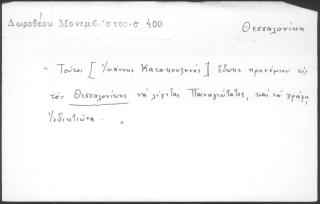 Δωροθέου Μονεμβ. Ἱστορ. σ. 400
Θεσσαλονίκη
„ Τοῦτος [ Ἰωάννης Κατακουζηνὸς ] ἔδωκε προνόμιον εἰς
τὸν Θεσσαλονίκης νὰ λέγεται Παναγιώτατος, καὶ νὰ γράφῃ
Ἰνδικτιῶνα. „